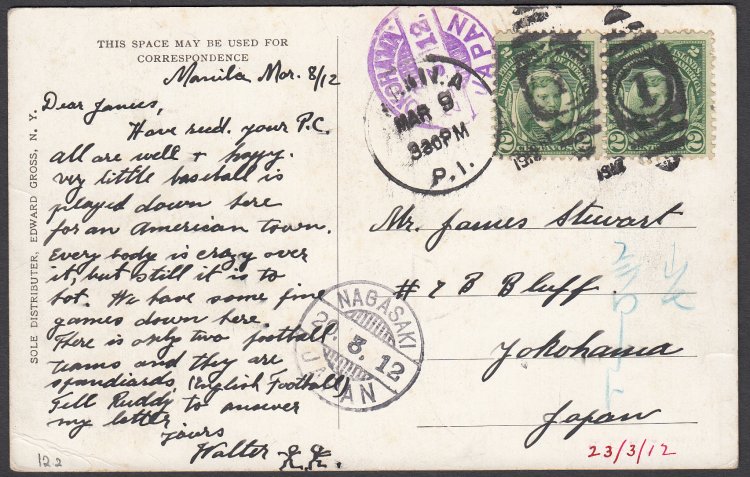 THIS SPACE MAY BE USED FOR
CORRESPONDENCE
Manila Mar. 8/12
Dear James,
Have recd. your P.C.
all are well + happy.
very little baseball is
played down here
for an American town.
Every body is crazy over
it, but still it is to
hot. We have some fine
games down here.
There is only two football
teams and they are
spandiards. (English Football)
Tell Ruddy to answer
my letter
yours
Walter
12.2
SOLE DISTRIBUTER, EDWARD GROSS, N. Y.
YOKOHAMA
12.
JAPAN
MANILA
MAR 9
330PM
P.I.
2 CENTAVOS 2
2 CENTAVOS 2
Mr. James Stewart
# 2 B Bluff.
Yokohama
Japan
NAGASAKI
3. 12
JAPAN
23/3/12